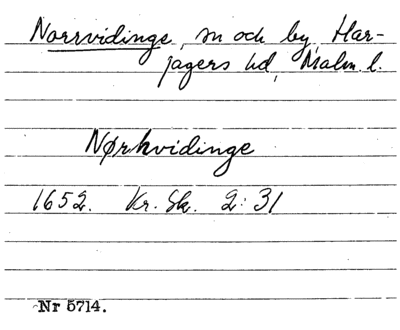 Norrvidinge, sn och by, Har-
jagers hd, Malm. l.
Nørkvidinge
1652. Kr. Sk. 2:31
Nr 5714.